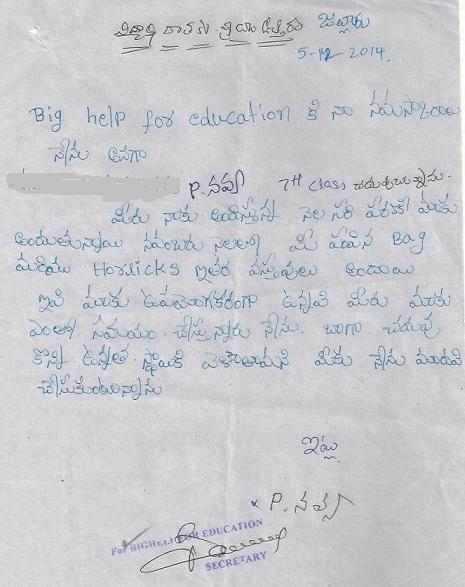 విద్యార్థి రాతకు ప్రియ ఉత్తరం జల్లూరు
5-12-2014.
Big help for education కి నా నమస్కారాలు
నేను అనగా
P. నవ్య 7th class చదువుచున్నాను.
మీరు నాకు అందిస్తున్న నెల సరి పరకులు మాకు
అందుతున్నాయి నవంబరు నెలలో మీ పంపిన Bag
మరియు Horlicks ఇతర వస్తువులు అందాయి
ఇవి మాకు ఉపయోగకరంగా ఉన్నవి మీరు మాకు
ఎంతో సహాయం చేస్తున్నారు నేను బాగా చదువు
కొని ఉన్నత స్థాయికి వెళతామని మీకు నేను మనవి
చేసుకుంటున్నాను
ఇట్లు
x P. నవ్య
For BIGHELP FOR EDUCATION
SECRETARY